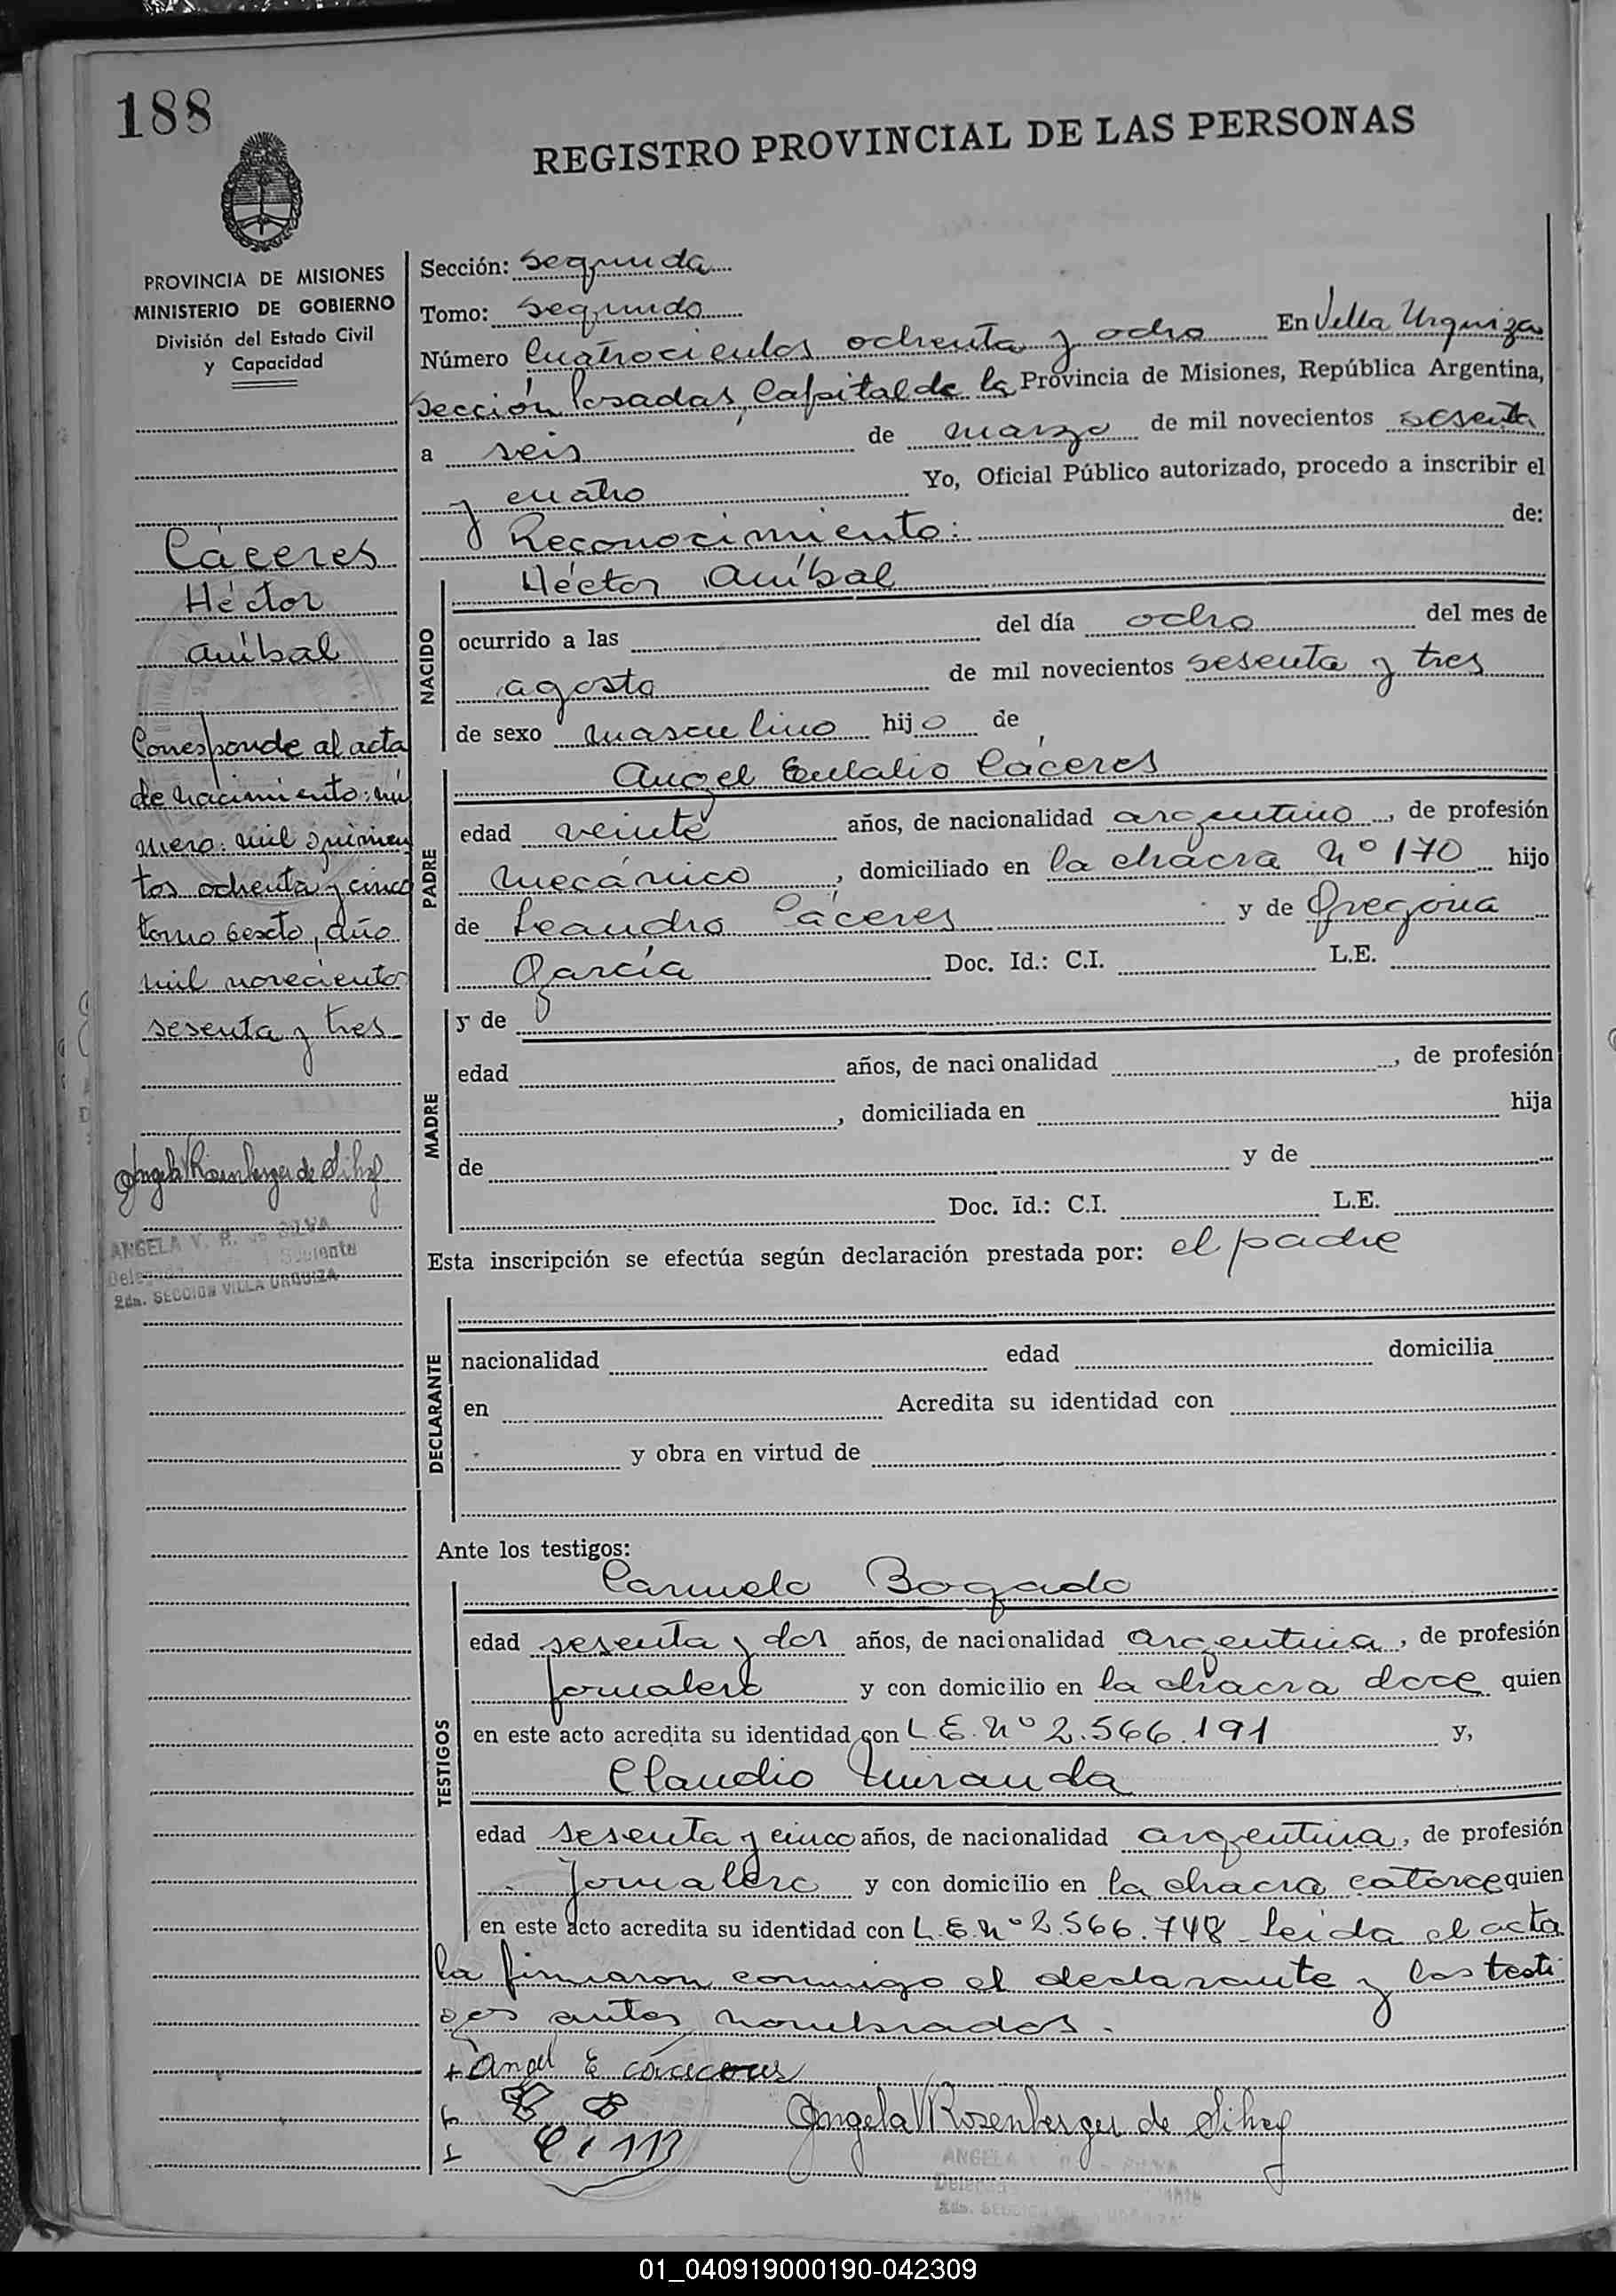 188
REGISTRO PROVINCIAL DE LAS PERSONAS
PROVINCIA DE MISIONES
MINISTERIO DE GOBIERNO
División del Estado Civil
y Capacidad
Cáceres
Héctor
Aníbal
Corresponde al acta
de nacimiento: nú
mero: mil quinien
tos ochenta y cinco
tomo sexto, año
mil novecientos
sesenta y tres
Angela V Rosenberger de Silva
ANGELA V. R. de SILVA
Suplente
2da. SECCION VILLA URQUIZA
Sección: Segunda
Tomo: Segundo
Número Cuatrocientos ochenta y ocho En Villa Urquiza
Sección Posadas, Capital de la Provincia de Misiones, República Argentina,
a seis de marzo de mil novecientos sesenta
y cuatro Yo, Oficial Público autorizado, procedo a inscribir el
Reconocimiento: de:
Héctor Aníbal
NACIDO
ocurrido a las del día ocho del mes de
agosto de mil novecientos sesenta y tres
de sexo masculino hijo de
PADRE
Angel Eulalio Cáceres
edad veinte años, de nacionalidad argentino, de profesión
mecánico, domiciliado en la chacra Nº 170 hijo
de Leandro Cáceres y de Gregoria
García Doc. Id.: C.I. L.E.
MADRE
y de
edad años, de nacionalidad , de profesión
, domiciliada en hija
de y de
Doc. Id.: C.I. L.E.
Esta inscripción se efectúa según declaración prestada por: el padre
DECLARANTE
nacionalidad edad domicilia
en Acredita su identidad con
y obra en virtud de
Ante los testigos:
TESTIGOS
Carmelo Bogado
edad sesenta y dos años, de nacionalidad argentina, de profesión
jornalero y con domicilio en la chacra doce quien
en este acto acredita su identidad con L.E. Nº 2.566.191 y,
Claudio Miranda
edad sesenta y cinco años, de nacionalidad argentina, de profesión
Jornalero y con domicilio en la chacra catorce quien
en este acto acredita su identidad con L.E. Nº 2.566.748 - Leida el acta
la firmaron conmigo el declarante y los testi
gos antes nombrados.
+ Angel E
Angela V Rosenberger de Silva
ANGELA
SILVA
01_040919000190-042309